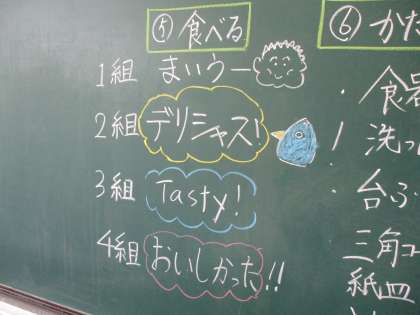 ⑤食べる
1組 まいうー
2組 デリシャス!
3組 Tasty!
4組 おいしかった!!
⑥かた
・食器
洗っ
台ふ
三角コ
紙皿